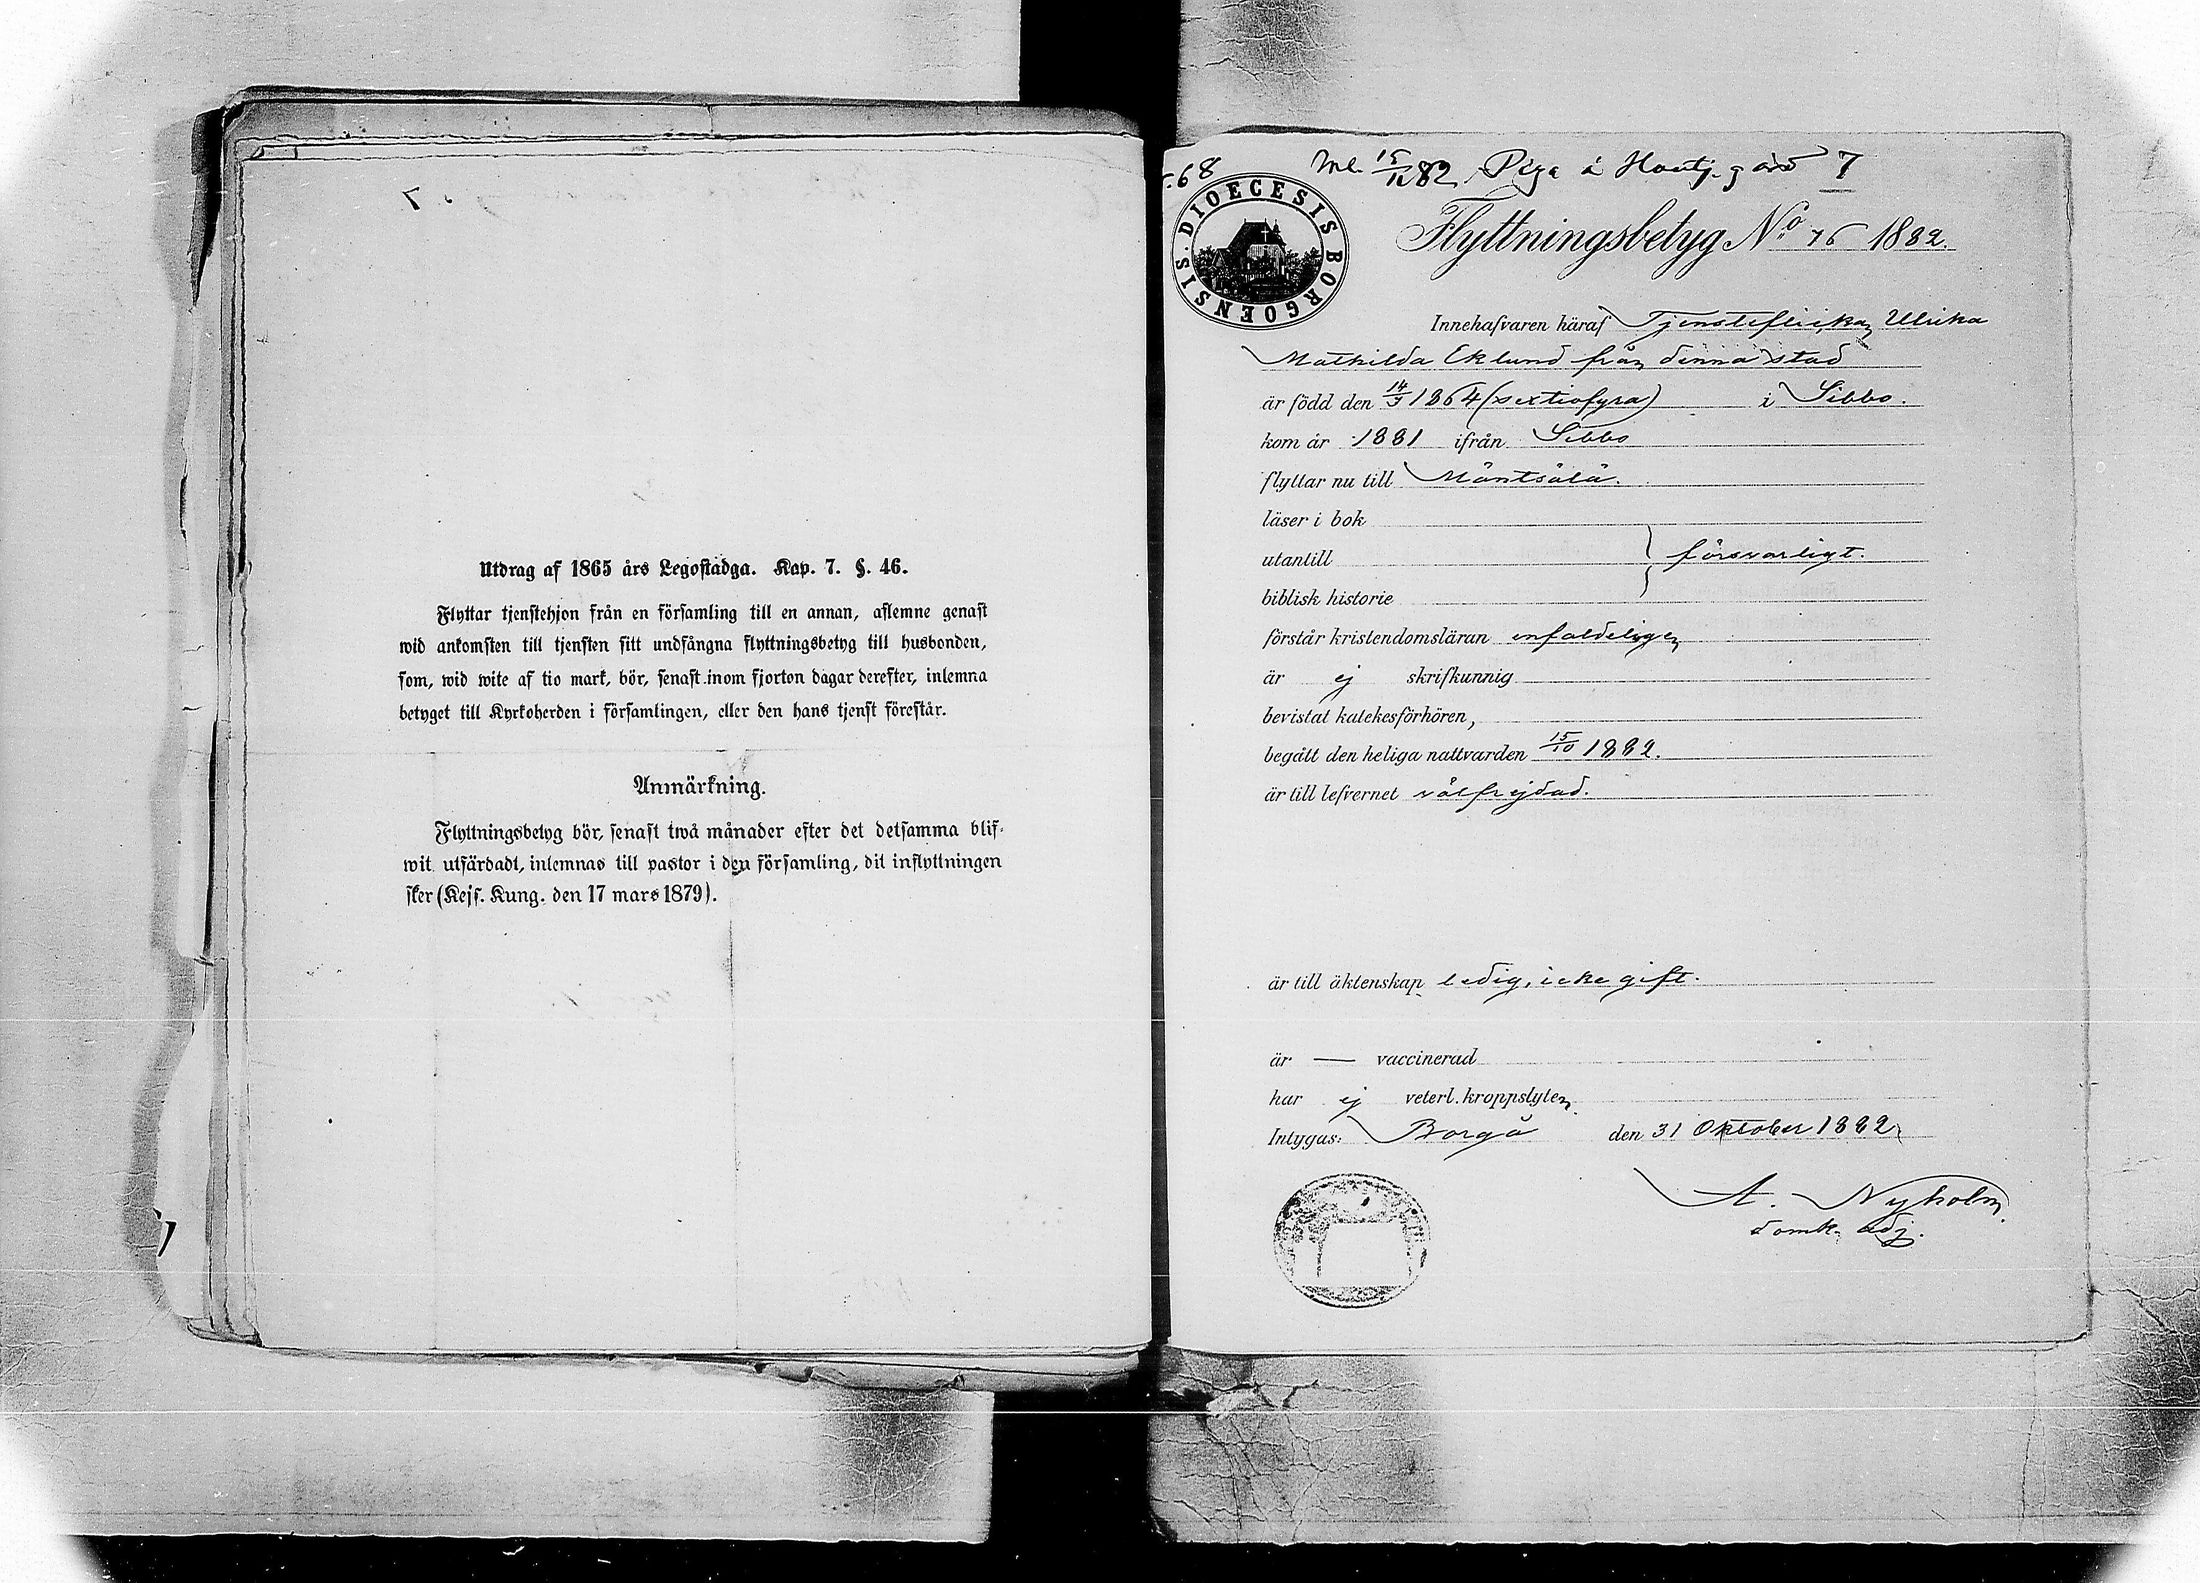 Utdrag af 1865 års Legostadga. Kap. 7. §. 46.
Flyttar tjenstehjon från en församling till en annan, aflemne genast
wid ankomsten till tjensten sitt undfångna flyttningsbetyg till husbonden,
som, wid wite af tio mark, bör, senast inom fjorton dagar derefter, inlemna
betyget till Kyrkoherden i församlingen, eller den hans tjenst förestår.
Anmärkning.
Flyttningsbetyg bör, senast twå månader efter det detsamma blif-
wit utfärdadt, inlemnas till pastor i den församling, dit inflyttningen
sker (Kejs. Kung. den 17 mars 1879).
68 82 Piga å gård 7
DIOECESIS BORGOENSIS.
Flyttningsbetyg No 76 1882.
Innehafvaren häraf Tjensteflickan Ulrika
Mathilda Eklund från denna stad
är född den 14/9 1864 (sextiofyra) i Sibbo.
kom år 1881 ifrån Sibbo
flyttar nu till Mäntsälä.
läser i bok
utantill försvarligt.
biblisk historie
förstår kristendomsläran enfaldeligen
är ej skrifkunnig
bevistat katekesförhören,
begått den heliga nattvarden 15/10 1882.
är till lefvernet välfrejdad.
är till äktenskap ledig, icke gift.
är — vaccinerad
har ej veterl. kroppslyten
Intygas: Borgå den 31 Oktober 1882,
A. Nyholm.
domk. adj.